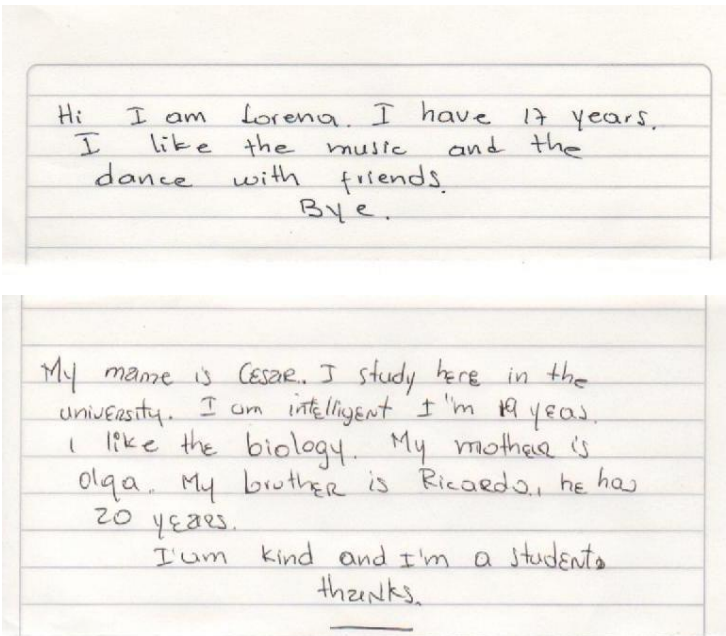 Hi I am Lorena. I have 17 years.
I like the music and the
dance with friends.
Bye.
My mame is Cesar. I study here in the
university. I am intelligent I'm 19 yeas.
I like the biology. My mother is
Olga. My bruther is Ricardo, he has
20 years.
I'um kind and I'm a students
thanks.